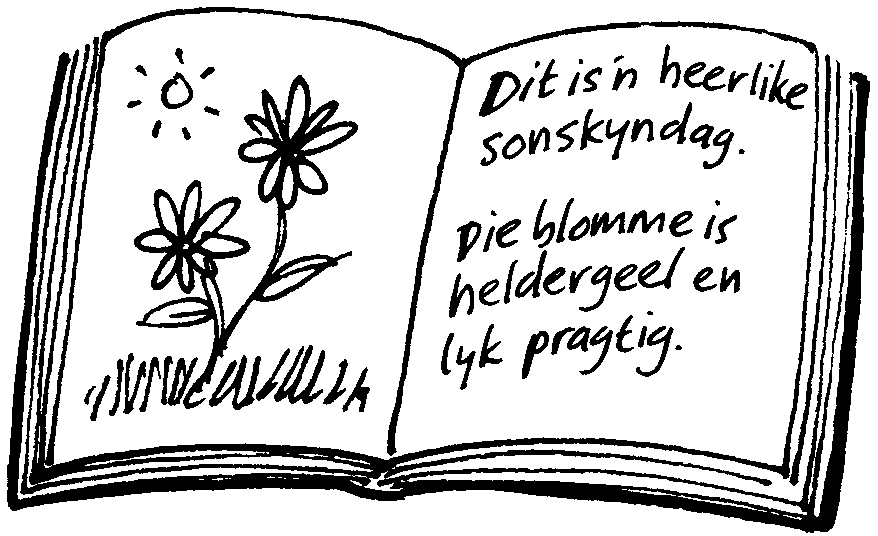 Dit is 'n heerlike
sonskyndag.
Die blomme is
heldergeel en
lyk pragtig.